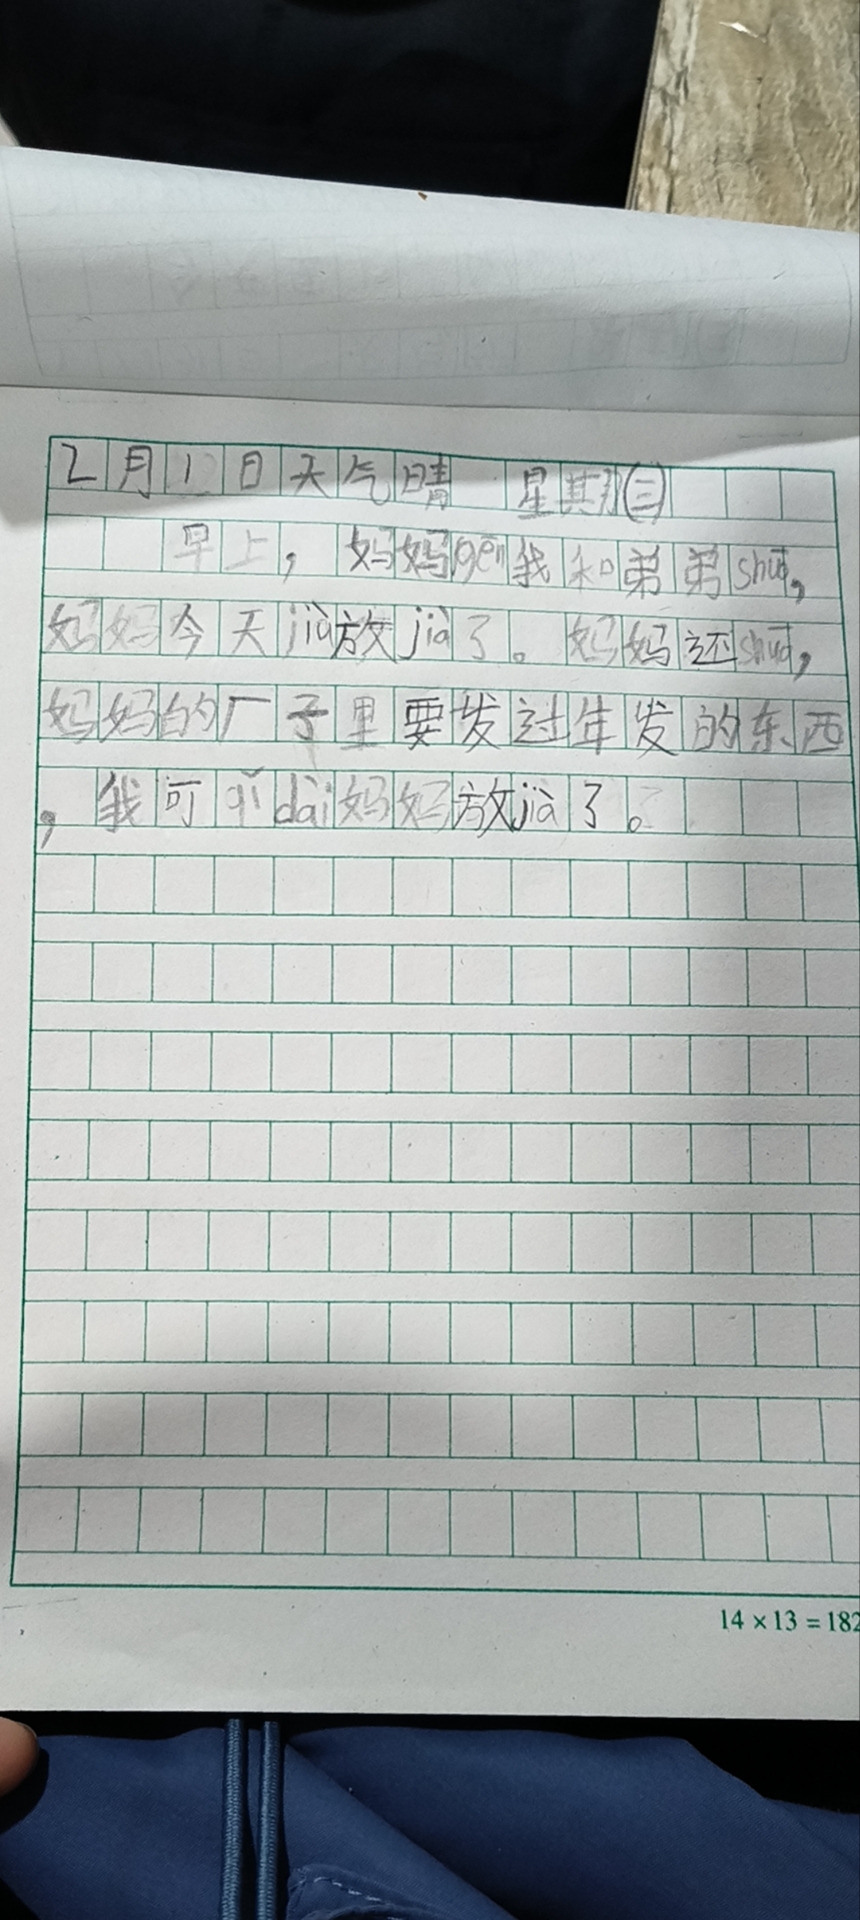 2月1日天气晴 星期(三)
早上，妈妈gēn我和弟弟shuō，
妈妈今天jià放jià了。妈妈还shuō，
妈妈的厂子里要发过年发的东西
，我可qǐdài妈妈放jià了。
14×13=182